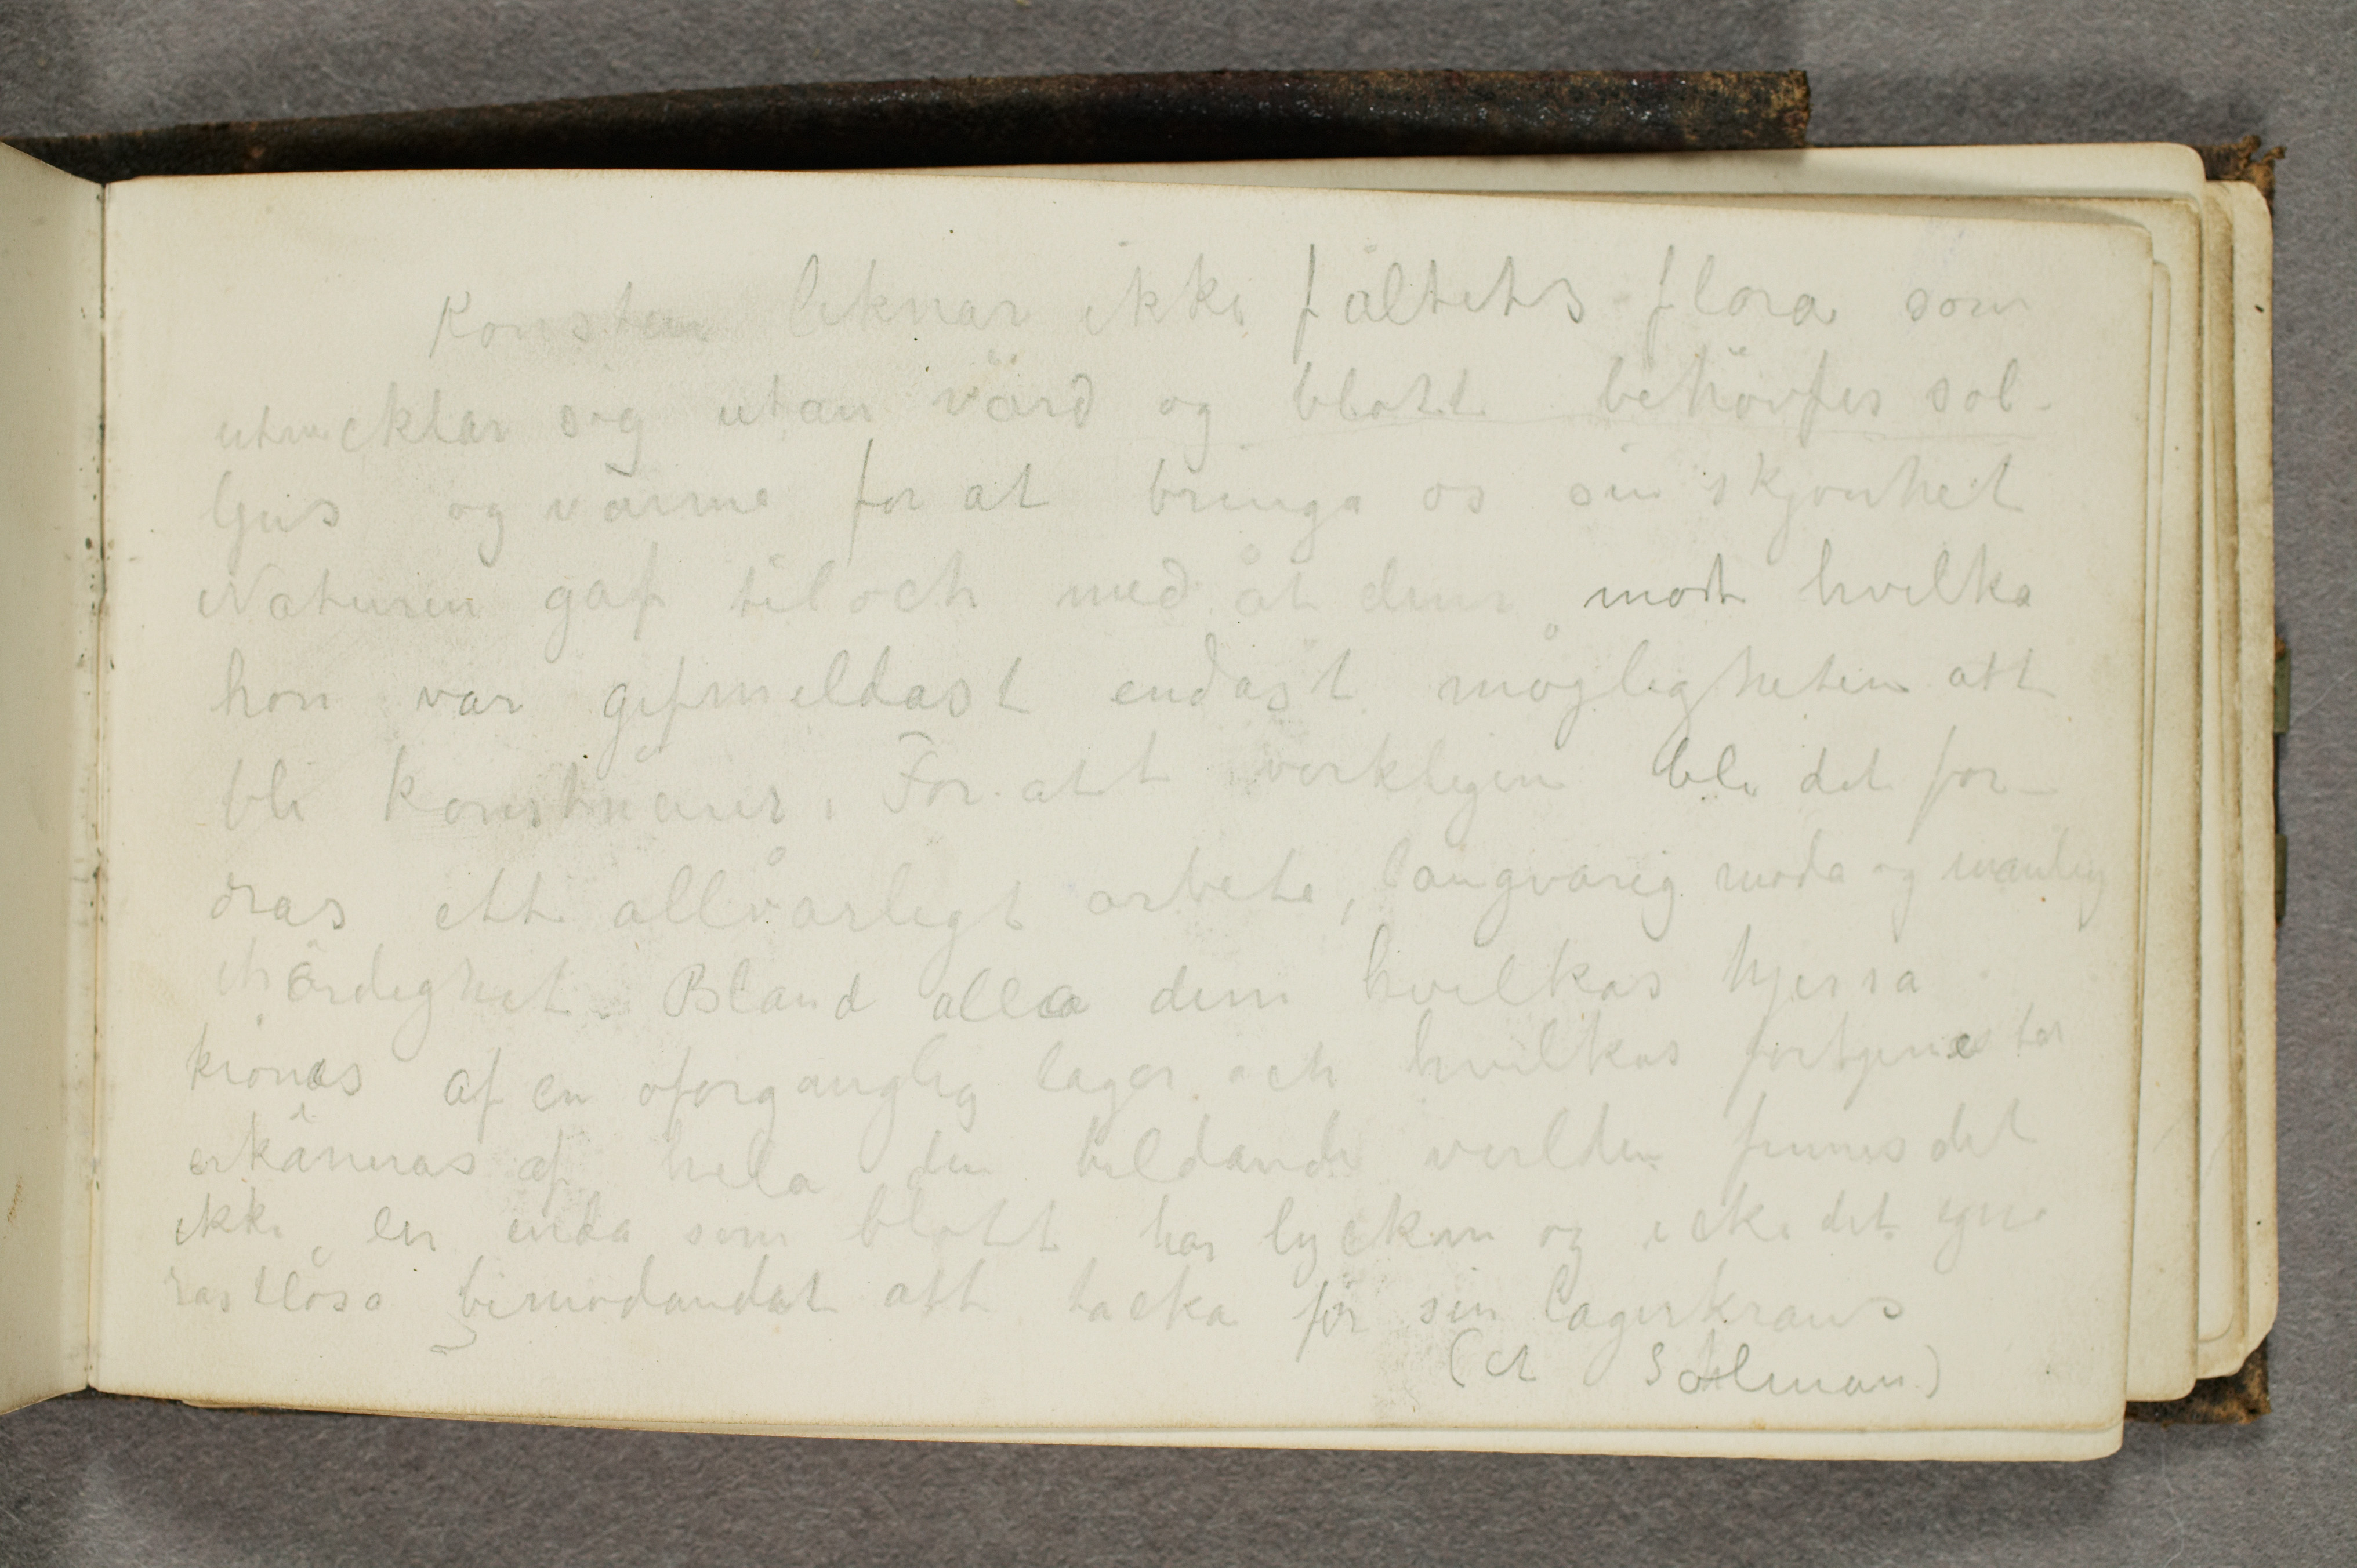 Konsten liknar ikke fältets flora som
utvecklar sig utan värd og blott behöfver sol-
ljus og värme for at bringa os sin skjönhet
Naturen gaf til och med åt dem mot hvilka
hon var gifmildast endast möjligheten att
bli konstnärer. For att verkligen bli det for-
dras ett allvarligt arbete, langvarig moda og manlig
ihärdighet. Bland alla dem hvilkas hjessa
krönas af en oforganglig lager och hvilkas fortjenester
erkännas af hela den bildande verlden finnes det
ikke en enda som blott har lyckan og icke det egna
rastlösa bemodandet att tacka för sin lagerkrans
(A Sohlman)